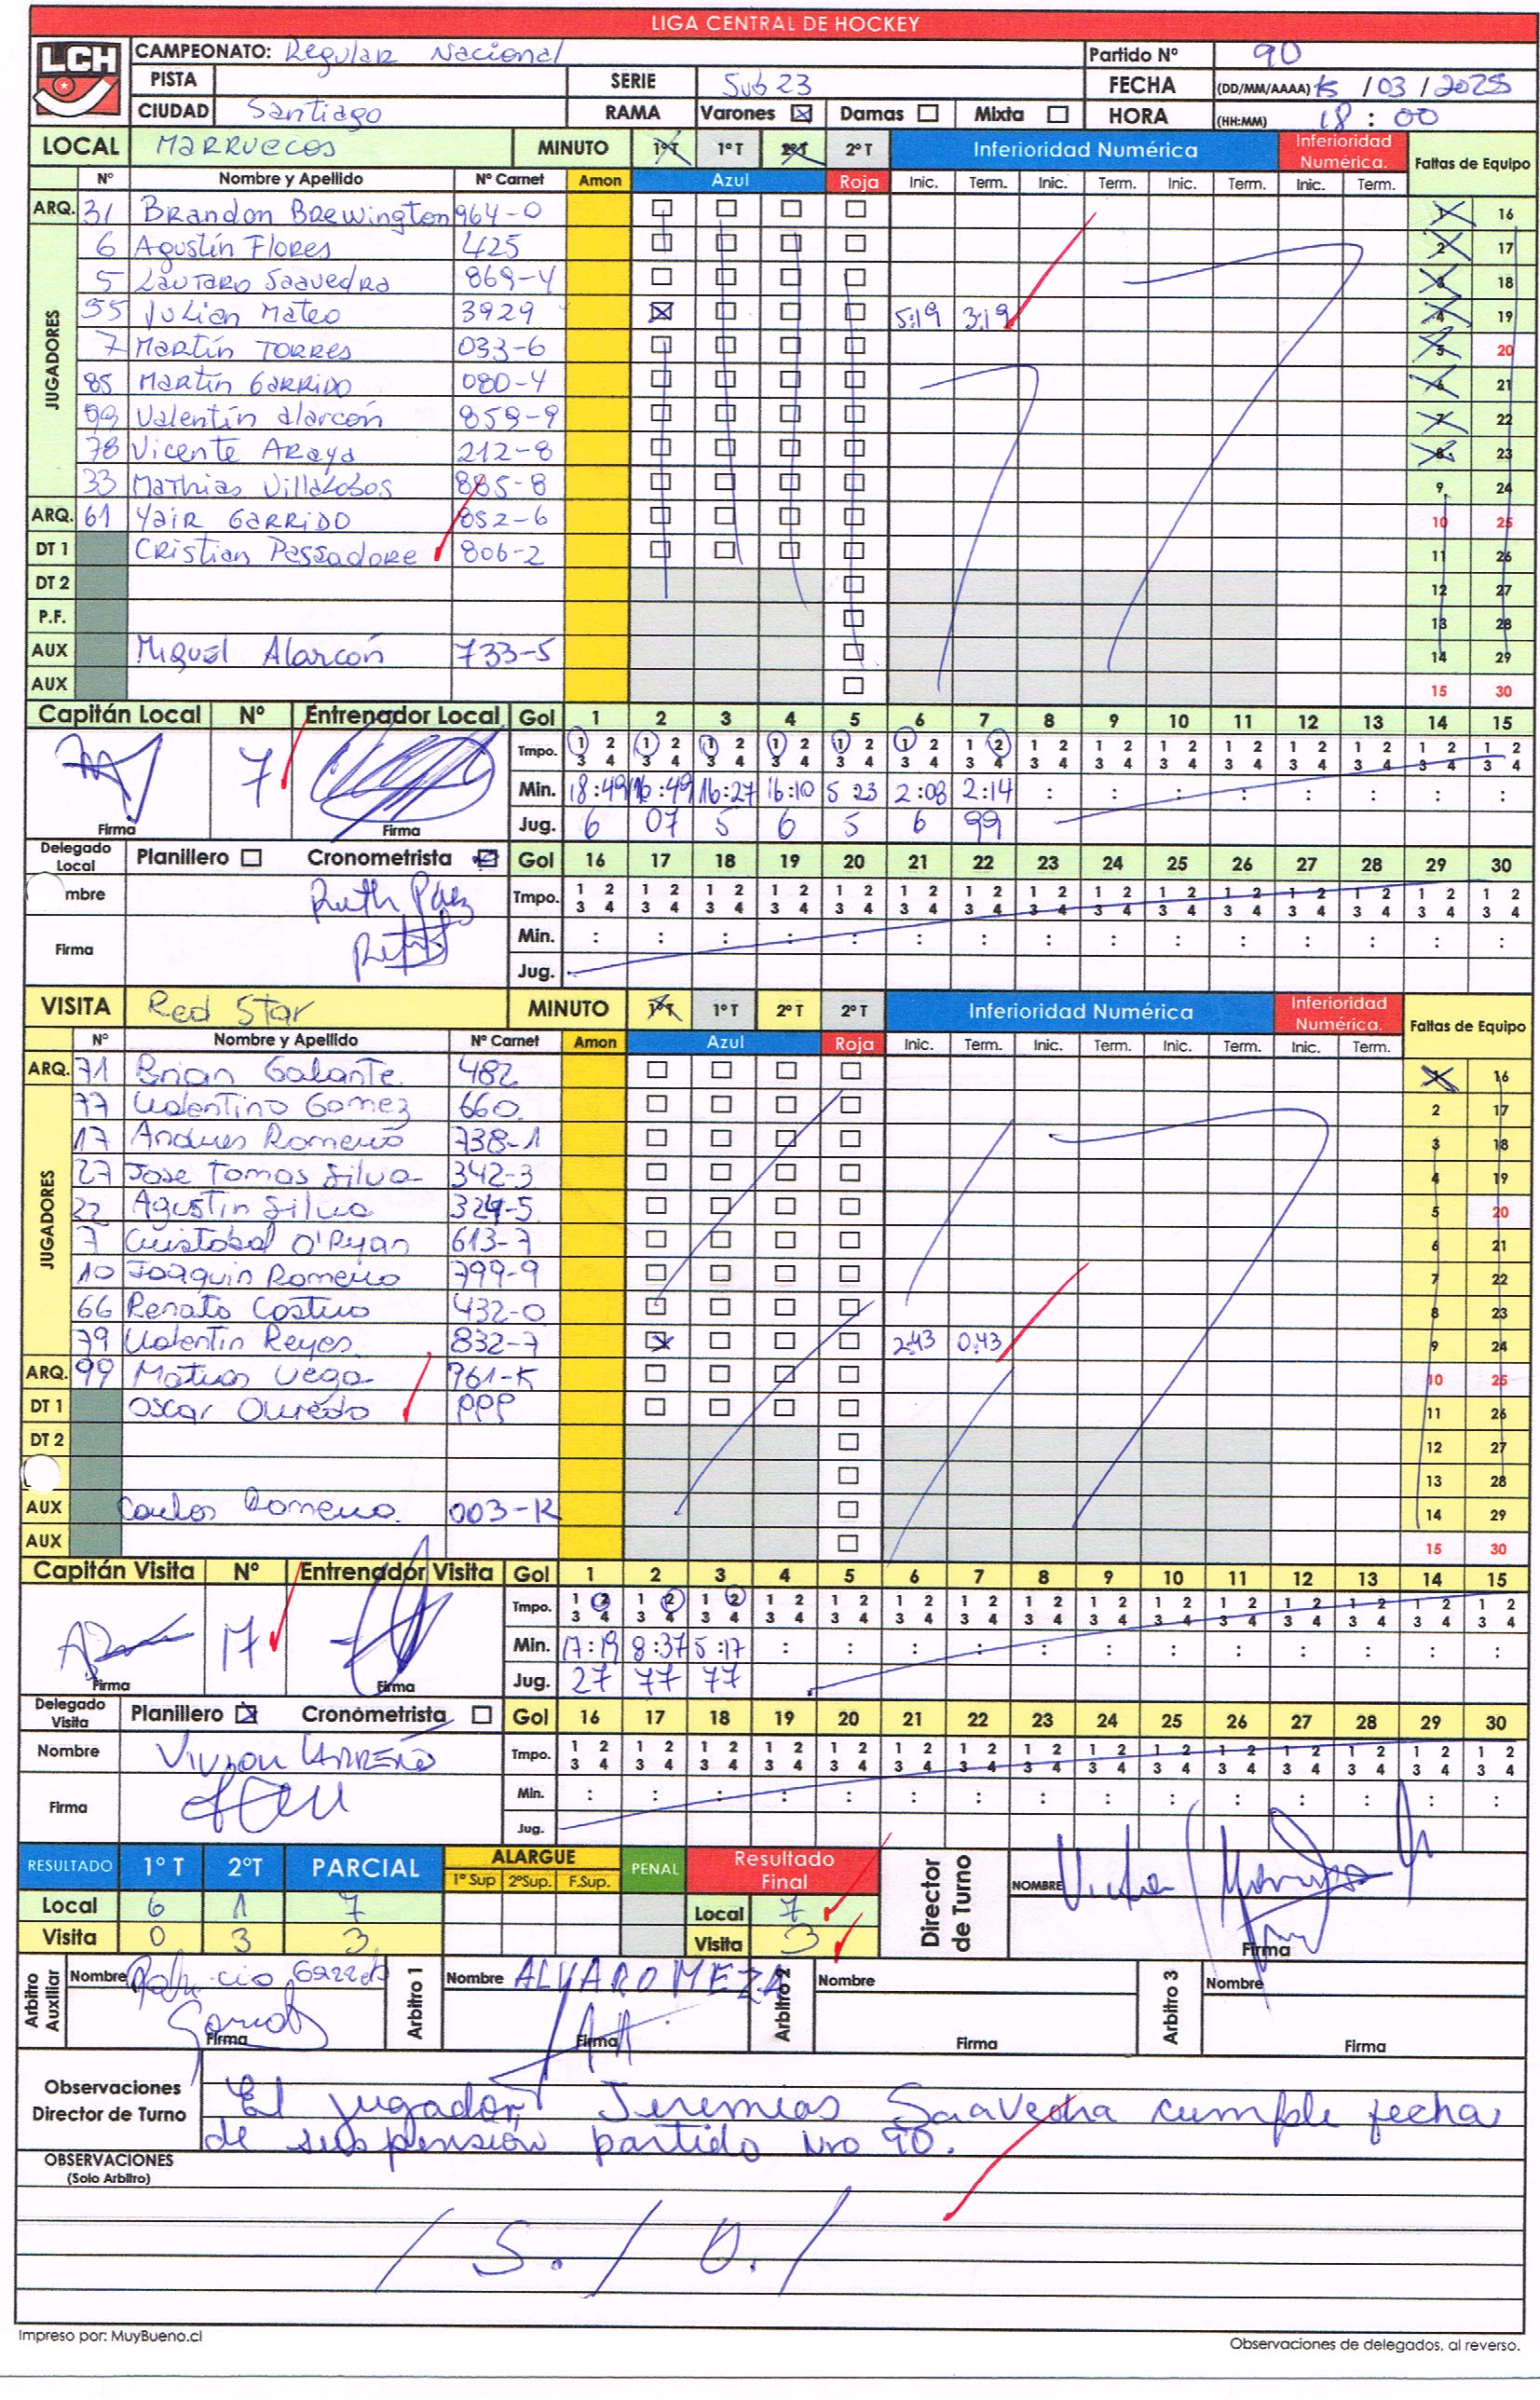 LIGA CENTRAL DE HOCKEY
LCH
CAMPEONATO: Regular Nacional Partido Nº 90
PISTA SERIE Sub 23 FECHA (DD/MM/AAAA) 15 / 03 / 2025
CIUDAD Santiago RAMA Varones Damas Mixta HORA (HH:MM) 18 : 00
LOCAL MARRUECOS MINUTO 1º T 1º T 2º T 2º T Inferioridad Numérica Inferioridad Numérica. Faltas de Equipo
Nº Nombre y Apellido Nº Carnet Amon Azul Roja Inic. Term. Inic. Term. Inic. Term. Inic. Term.
ARQ. 31 Brandon Brewington 964-0 1 16
JUGADORES
6 Agustín Flores 425 2 17
5 Lautaro Saavedra 869-4 3 18
55 Julian Mateo 3929 5:19 3:19 4 19
7 Martín Torres 033-6 5 20
85 Martín Garrido 080-4 6 21
99 Valentín Alarcón 859-9 7 22
78 Vicente Araya 212-8 8 23
33 Mathias Villalobos 885-8 9 24
ARQ. 61 Yair Garrido 852-6 10 25
DT 1 Cristian Passadore 806-2 11 26
DT 2 12 27
P.F. 13 28
AUX Miguel Alarcón 733-5 14 29
AUX 15 30
Capitán Local Nº Entrenador Local Gol 1 2 3 4 5 6 7 8 9 10 11 12 13 14 15
Tmpo. 1 2 1 2 1 2 1 2 1 2 1 2 1 2 1 2 1 2 1 2 1 2 1 2 1 2 1 2 1 2
3 4 3 4 3 4 3 4 3 4 3 4 3 4 3 4 3 4 3 4 3 4 3 4 3 4 3 4 3 4
7 Min. 18:49 16:49 16:27 16:10 5 23 2:08 2:14 : : : : : : : :
Firma Firma Jug. 6 07 5 6 5 6 99
Delegado Local Planillero Cronometrista Gol 16 17 18 19 20 21 22 23 24 25 26 27 28 29 30
mbre Ruth Páez Tmpo. 1 2 1 2 1 2 1 2 1 2 1 2 1 2 1 2 1 2 1 2 1 2 1 2 1 2 1 2 1 2
3 4 3 4 3 4 3 4 3 4 3 4 3 4 3 4 3 4 3 4 3 4 3 4 3 4 3 4 3 4
Firma Min. : : : : : : : : : : : : : : :
Jug.
VISITA Red Star MINUTO 1º T 1º T 2º T 2º T Inferioridad Numérica Inferioridad Numérica. Faltas de Equipo
Nº Nombre y Apellido Nº Carnet Amon Azul Roja Inic. Term. Inic. Term. Inic. Term. Inic. Term.
ARQ. 71 Brian Galante 482 1 16
JUGADORES
77 Valentino Gomez 660 2 17
17 Andres Romero 738-1 3 18
27 Jose Tomas Silva 342-3 4 19
22 Agustin Silva 324-5 5 20
7 Cristobal O'Ryan 613-7 6 21
10 Joaquin Romero 799-9 7 22
66 Renato Castro 432-0 8 23
79 Valentin Reyes 832-7 2:43 0:43 9 24
ARQ. 99 Matias Vega 961-K 10 25
DT 1 Oscar Oviedo PPP 11 26
DT 2 12 27
13 28
AUX Carlos Romero 003-K 14 29
AUX 15 30
Capitán Visita Nº Entrenador Visita Gol 1 2 3 4 5 6 7 8 9 10 11 12 13 14 15
Tmpo. 1 2 1 2 1 2 1 2 1 2 1 2 1 2 1 2 1 2 1 2 1 2 1 2 1 2 1 2 1 2
3 4 3 4 3 4 3 4 3 4 3 4 3 4 3 4 3 4 3 4 3 4 3 4 3 4 3 4 3 4
17 Min. 17:19 8:37 5:17 : : : : : : : : : : : :
Firma Firma Jug. 27 77 77
Delegado Visita Planillero Cronometrista Gol 16 17 18 19 20 21 22 23 24 25 26 27 28 29 30
Nombre Vivian Carreño Tmpo. 1 2 1 2 1 2 1 2 1 2 1 2 1 2 1 2 1 2 1 2 1 2 1 2 1 2 1 2 1 2
3 4 3 4 3 4 3 4 3 4 3 4 3 4 3 4 3 4 3 4 3 4 3 4 3 4 3 4 3 4
Firma Min. : : : : : : : : : : : : : : :
Jug.
RESULTADO 1º T 2ºT PARCIAL ALARGUE 1º Sup 2ºSup. F.Sup. PENAL Resultado Final Director de Turno NOMBRE
Local 6 1 7 Local 7
Visita 0 3 3 Visita 3 Firma
Arbitro Auxiliar Nombre Arbitro 1 Nombre ALVARO MEZA Arbitro 2 Nombre Arbitro 3 Nombre
Firma Firma Firma Firma
Observaciones Director de Turno
El jugador Jeremias Saavedra cumple fecha
de suspensión partido Nro 90.
OBSERVACIONES
(Solo Arbitro)
/ S. / O. /
Impreso por: MuyBueno.cl Observaciones de delegados, al reverso.